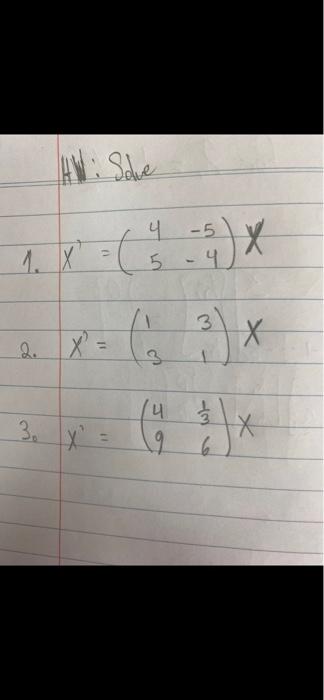 HW: Solve
1. X' = (4 -5
5 -4) X
2. X' = (1 3
3 1) X
3. X' = (4 1/3
9 6) X